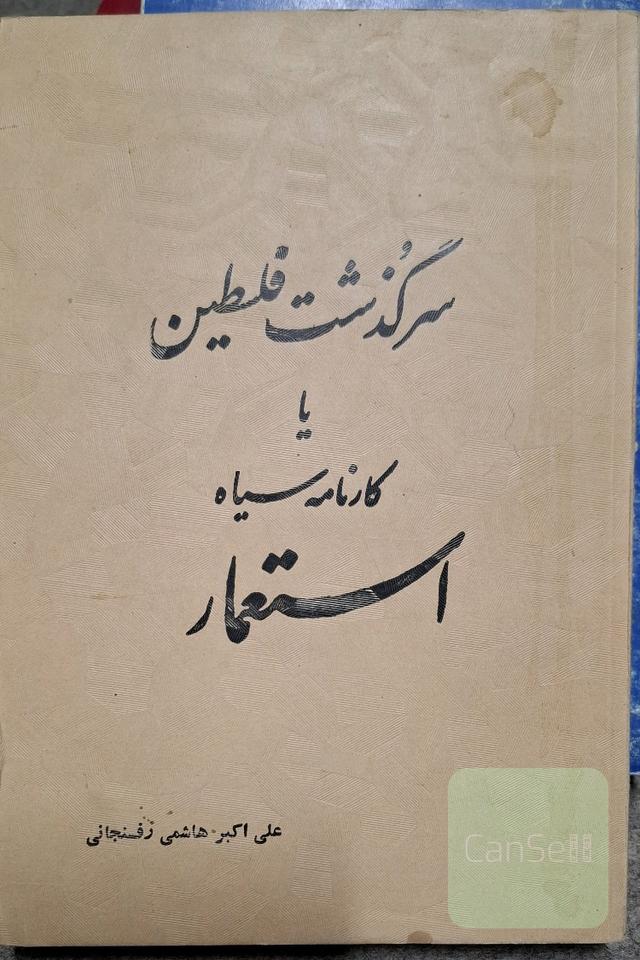 سرگذشت فلسطین
یا
کارنامه سیاه
استعمار
علی اکبر هاشمی رفسنجانی
CanSell